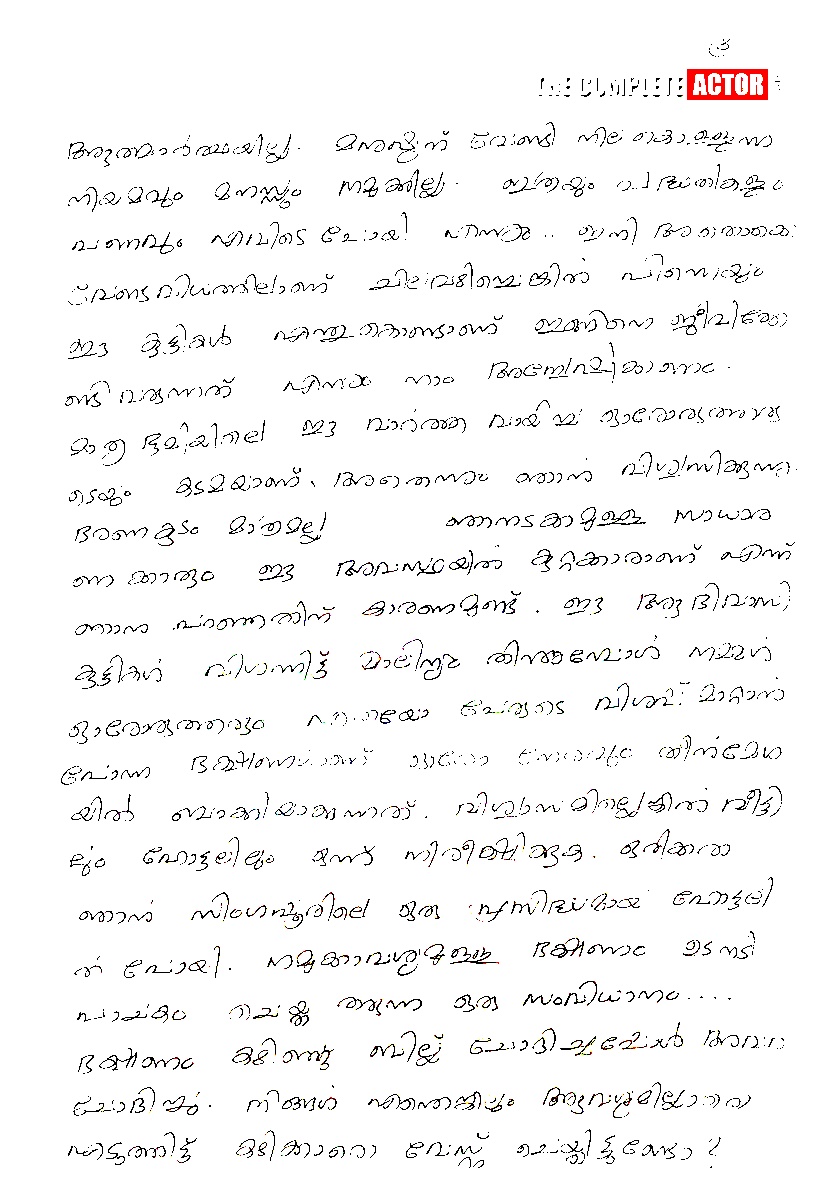 ൩
THE COMPLETE ACTOR
ആത്മാർത്ഥയില്ല. മനുഷ്യന് വേണ്ടി നില കൊള്ളുന്ന
നിയമവും മനസ്സും നമുക്കില്ല. ഇത്രയും പദ്ധതികളും
പണവും എവിടെ പോയി എന്നും.. ഇനി അതൊക്കെ
വേണ്ടവിധത്തിലാണ് ചിലവഴിച്ചെങ്കിൽ പിന്നെയും
ഈ കുട്ടികൾ എന്തുകൊണ്ടാണ് ഇങ്ങിനെ ജീവിക്കേ
ണ്ടി വരുന്നത് എന്നും നാം അന്വേഷിക്കണം.
മാതൃഭൂമിയിലെ ഈ വാർത്ത വായിച്ച ഓരോരുത്തരു
ടെയും കടമയാണ്. അതെന്നും ഞാൻ വിശ്വസിക്കുന്നു.
ഭരണകൂടം മാത്രമല്ല ഞാനടക്കമുള്ള സാധാര
ണക്കാരും ഈ അവസ്ഥയിൽ കുറ്റക്കാരാണ് എന്ന്
ഞാൻ പറഞ്ഞതിന് കാരണമുണ്ട്. ഈ ആദിവാസി
കുട്ടികൾ വിശന്നിട്ട് മാലിന്യം തിന്നുമ്പോൾ നമ്മൾ
ഓരോരുത്തരും എത്രയോ പേരുടെ വിശപ്പ് മാറ്റാൻ
പോന്ന ഭക്ഷണമാണ് ഓരോ നേരവും തീൻമേശ
യിൽ ബാക്കിയാക്കുന്നത്. വിശ്വാസമില്ലെങ്കിൽ വീട്ടി
ലും ഹോട്ടലിലും ഒന്ന് നിരീക്ഷിക്കുക. ഒരിക്കൽ
ഞാൻ സിംഗപ്പൂരിലെ ഒരു പ്രസിദ്ധമായ ഹോട്ടലി
ൽ പോയി. നമുക്കാവശ്യമുള്ള ഭക്ഷണം ഉടനടി
പാചകം ചെയ്തു തരുന്ന ഒരു സംവിധാനം....
ഭക്ഷണം കഴിഞ്ഞു ബില്ല് ചോദിച്ചപ്പോൾ അവർ
ചോദിച്ചു. നിങ്ങൾ എന്തെങ്കിലും ആവശ്യമില്ലാതെ
എടുത്തിട്ട് കഴിക്കാതെ വേസ്റ്റ് ചെയ്തിട്ടുണ്ടോ?